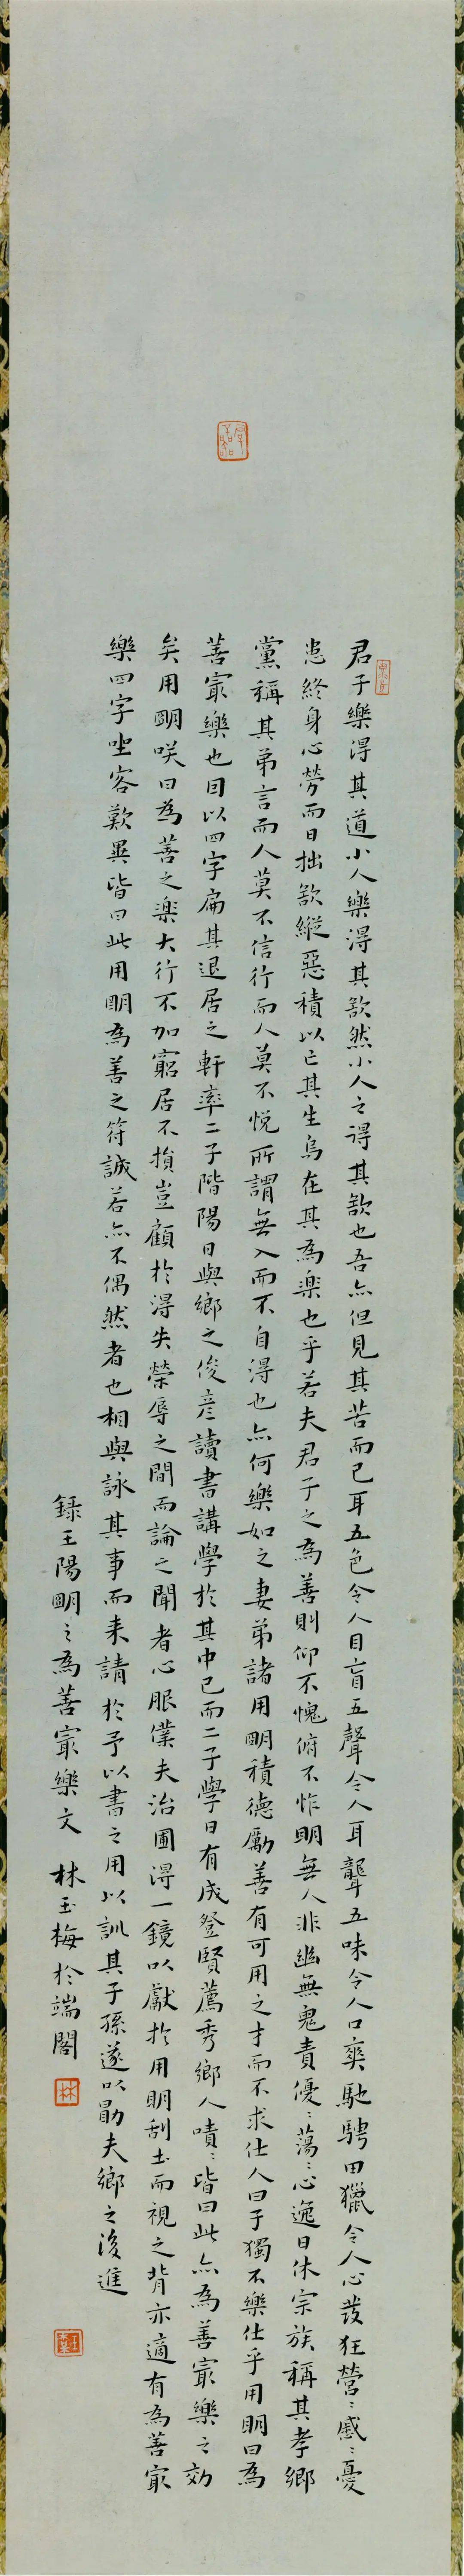 君子樂淂其道小人樂淂其欲然小人之得其欲也吾亦但見其苦而已耳五色令人目盲五聲令人耳聾五味令人口爽馳騁田獵令人心發狂營〻慼〻憂
患終身心勞而日拙欲縱惡積以亡其生烏在其為樂也乎若夫君子之為善則仰不愧俯不怍明無人非幽無鬼責優〻蕩〻心逸日休宗族稱其孝鄉
黨稱其弟言而人莫不信行而人莫不悅所謂無入而不自得也亦何樂如之妻弟諸用朙積德勵善有可用之才而不求仕人曰子獨不樂仕乎用朙曰為
善㝡樂也因以四字扁其退居之軒率二子階陽日與鄉之俊彥讀書講學於其中已而二子學日有成登賢薦秀鄉人嘖〻皆曰此亦為善㝡樂之効
矣用朙咲曰為善之樂大行不加窮居不損豈顧於淂失榮辱之間而論之聞者心服僕夫治圃淂一鏡以獻於用明刮土而視之背亦適有為善㝡
樂四字坐客歎異皆曰此用朙為善之符誠若亦不偶然者也相與詠其事而来請於予以書之用以訓其子孫遂以勖夫鄉之後進
錄王陽朙之為善㝡樂文 林玉梅於端閣
林